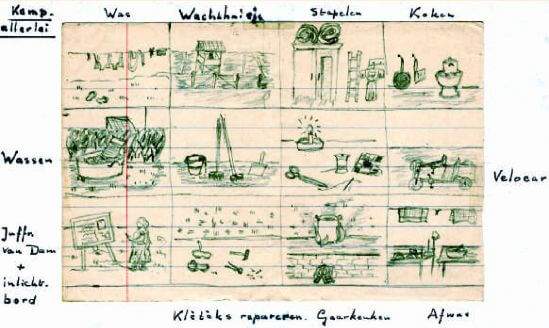 Kamp. Was Wachthuisje Stapelen Koken
allerlei
Wassen
Velocar
Juffr.
van Dam
+
inlicht.
bord
Klètèks repareren. Gaarkeuken Afwas